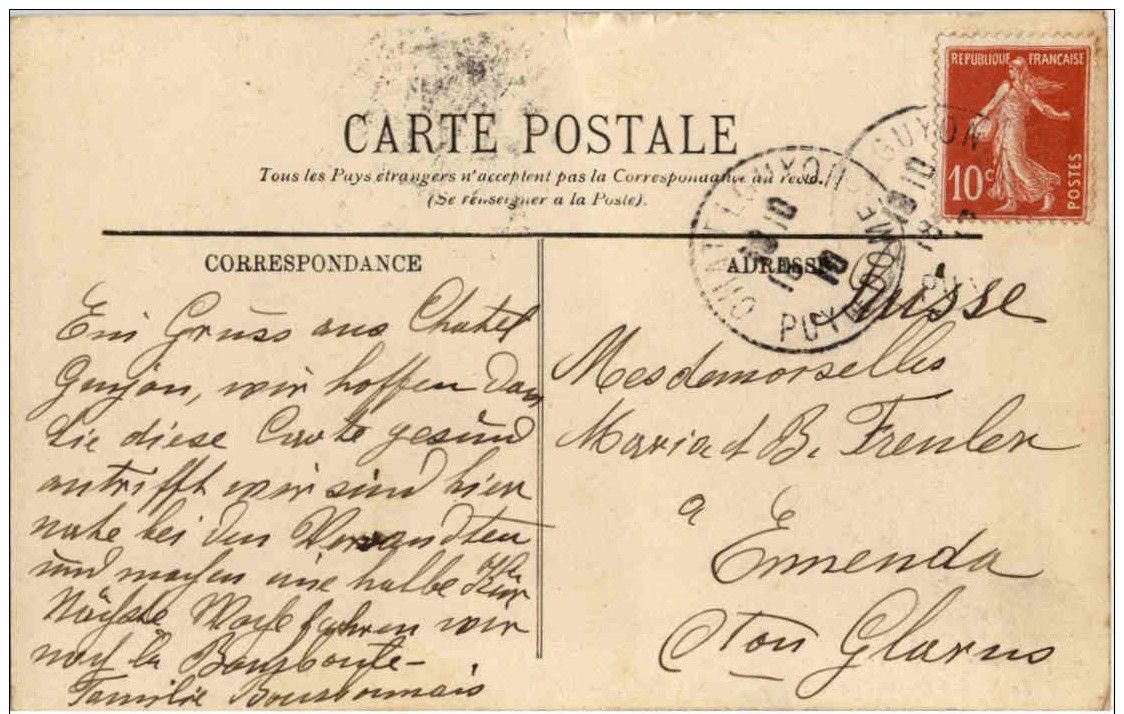 CARTE POSTALE
Tous les Pays étrangers n'acceptent pas la Correspondance au recto.
(Se renseigner a la Poste).
REPUBLIQUE FRANÇAISE
10 c
POSTES
CHATEL-GUYON
PUY DE DOME
GUYON
CORRESPONDANCE
Ein Gruss aus Chatel
Guyon, wir hoffen dass
Sie diese Carte gesund
antrifft wir sind hier
nahe bei den Verwandten
und machen eine halbe Kur
Nächste Woche fahren wir
noch la Bourboule-
Familie Bourbonnais
ADRESSE
Suisse
Mesdemoiselles
Maria & B. Freuler
a Ennenda
Cton Glarus